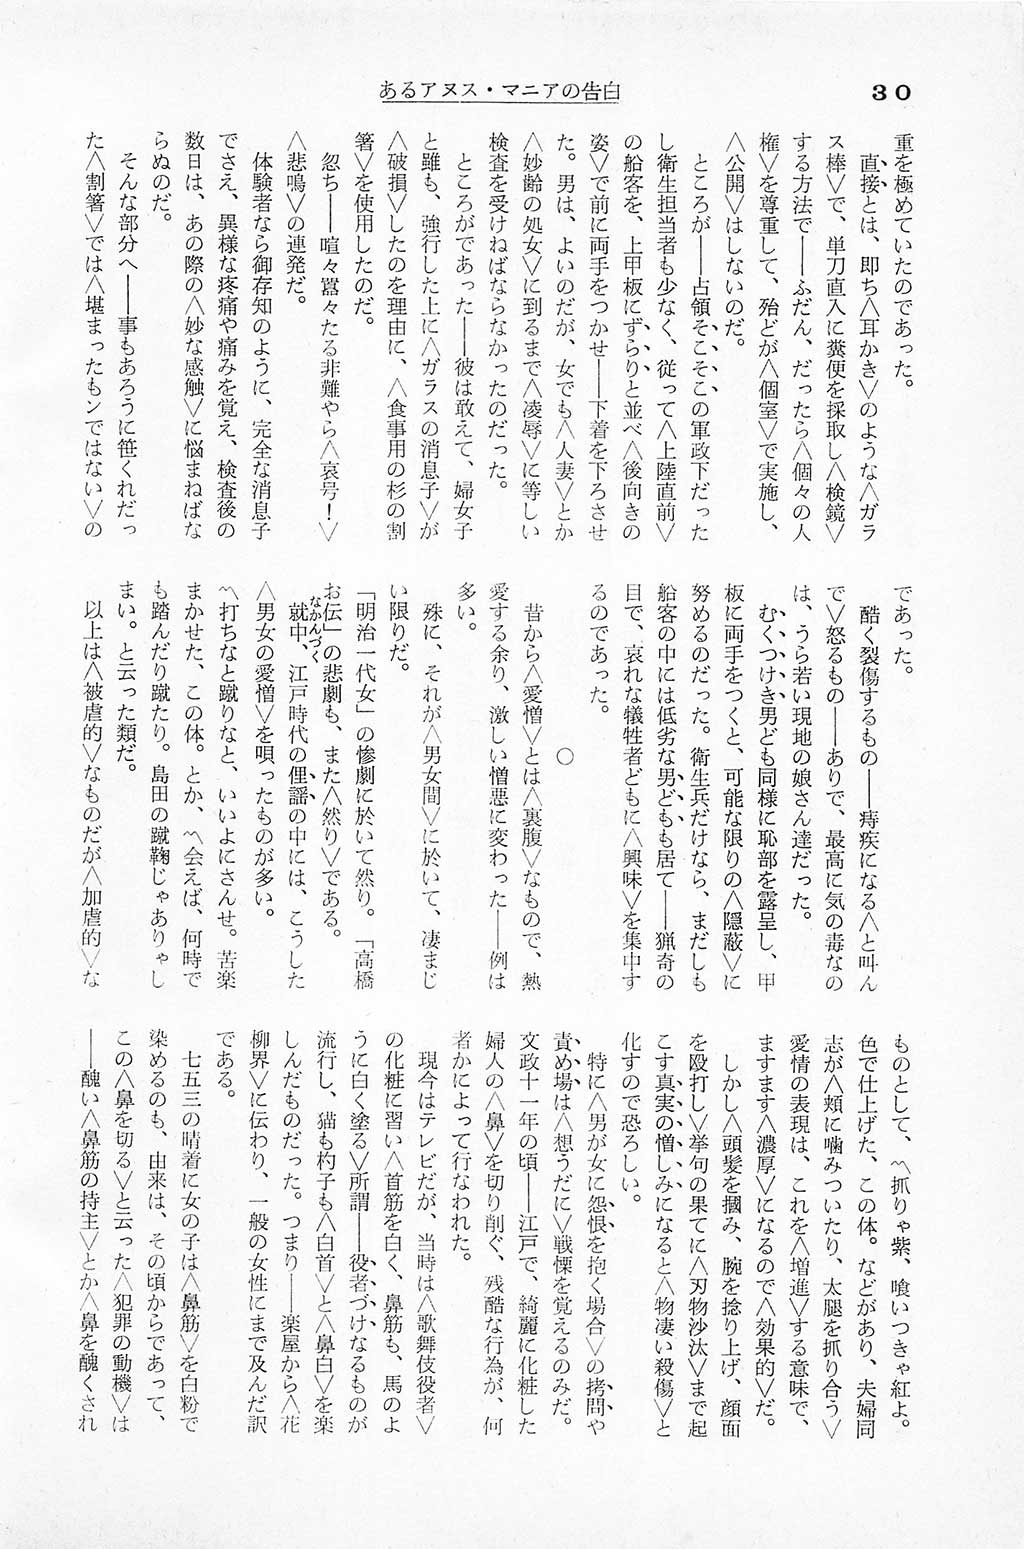 あるアヌス・マニアの告白
30
重を極めていたのであった。
直接とは、即ち〈耳かき〉のような〈ガラ
ス棒〉で、単刀直入に糞便を採取し〈検鏡〉
する方法で――ふだん、だったら〈個々の人
権〉を尊重して、殆どが〈個室〉で実施し、
〈公開〉はしないのだ。
ところが――占領そこそこの軍政下だった
し衛生担当者も少なく、従って〈上陸直前〉
の船客を、上甲板にずらりと並べ〈後向きの
姿〉で前に両手をつかせ――下着を下ろさせ
た。男は、よいのだが、女でも〈人妻〉とか
〈妙齢の処女〉に到るまで〈凌辱〉に等しい
検査を受けねばならなかったのだった。
ところがであった――彼は敢えて、婦女子
と雖も、強行した上に〈ガラスの消息子〉が
〈破損〉したのを理由に、〈食事用の杉の割
箸〉を使用したのだ。
忽ち――喧々囂々たる非難やら〈哀号！〉
〈悲鳴〉の連発だ。
体験者なら御存知のように、完全な消息子
でさえ、異様な疼痛や痛みを覚え、検査後の
数日は、あの際の〈妙な感触〉に悩まねばな
らぬのだ。
そんな部分へ――事もあろうに笹くれだっ
た〈割箸〉では〈堪まったもンではない〉の
であった。
酷く裂傷するもの――痔疾になる〈と叫ん
で〉怒るもの――ありで、最高に気の毒なの
は、うら若い現地の娘さん達だった。
むくつけき男ども同様に恥部を露呈し、甲
板に両手をつくと、可能な限りの〈隠蔽〉に
努めるのだった。衛生兵だけなら、まだしも
船客の中には低劣な男どもも居て――猟奇の
目で、哀れな犠牲者どもに〈興味〉を集中す
るのであった。
○
昔から〈愛憎〉とは〈裏腹〉なもので、熱
愛する余り、激しい憎悪に変わった――例は
多い。
殊に、それが〈男女間〉に於いて、凄まじ
い限りだ。
「明治一代女」の惨劇に於いて然り。「高橋
お伝」の悲劇も、また〈然り〉である。
就中、江戸時代の俚謡の中には、こうした
なかんづく
〈男女の愛憎〉を唄ったものが多い。
〽打ちなと蹴りなと、いいよにさんせ。苦楽
まかせた、この体。とか、〽会えば、何時で
も踏んだり蹴たり。島田の蹴鞠じゃありゃし
まい。と云った類だ。
以上は〈被虐的〉なものだが〈加虐的〉な
ものとして、〽抓りゃ紫、喰いつきゃ紅よ。
色で仕上げた、この体。などがあり、夫婦同
志が〈頬に噛みついたり、太腿を抓り合う〉
愛情の表現は、これを〈増進〉する意味で、
ますます〈濃厚〉になるので〈効果的〉だ。
しかし〈頭髪を摑み、腕を捻り上げ、顔面
を殴打し〉挙句の果てに〈刃物沙汰〉まで起
こす真実の憎しみになると〈物凄い殺傷〉と
化すので恐ろしい。
特に〈男が女に怨恨を抱く場合〉の拷問や
責め場は〈想うだに〉戦慄を覚えるのみだ。
文政十一年の頃――江戸で、綺麗に化粧した
婦人の〈鼻〉を切り削ぐ、残酷な行為が、何
者かによって行なわれた。
現今はテレビだが、当時は〈歌舞伎役者〉
の化粧に習い〈首筋を白く、鼻筋も、馬のよ
うに白く塗る〉所謂――役者づけなるものが
流行し、猫も杓子も〈白首〉と〈鼻白〉を楽
しんだものだった。つまり――楽屋から〈花
柳界〉に伝わり、一般の女性にまで及んだ訳
である。
七五三の晴着に女の子は〈鼻筋〉を白粉で
染めるのも、由来は、その頃からであって、
この〈鼻を切る〉と云った〈犯罪の動機〉は
――醜い〈鼻筋の持主〉とか〈鼻を醜くされ